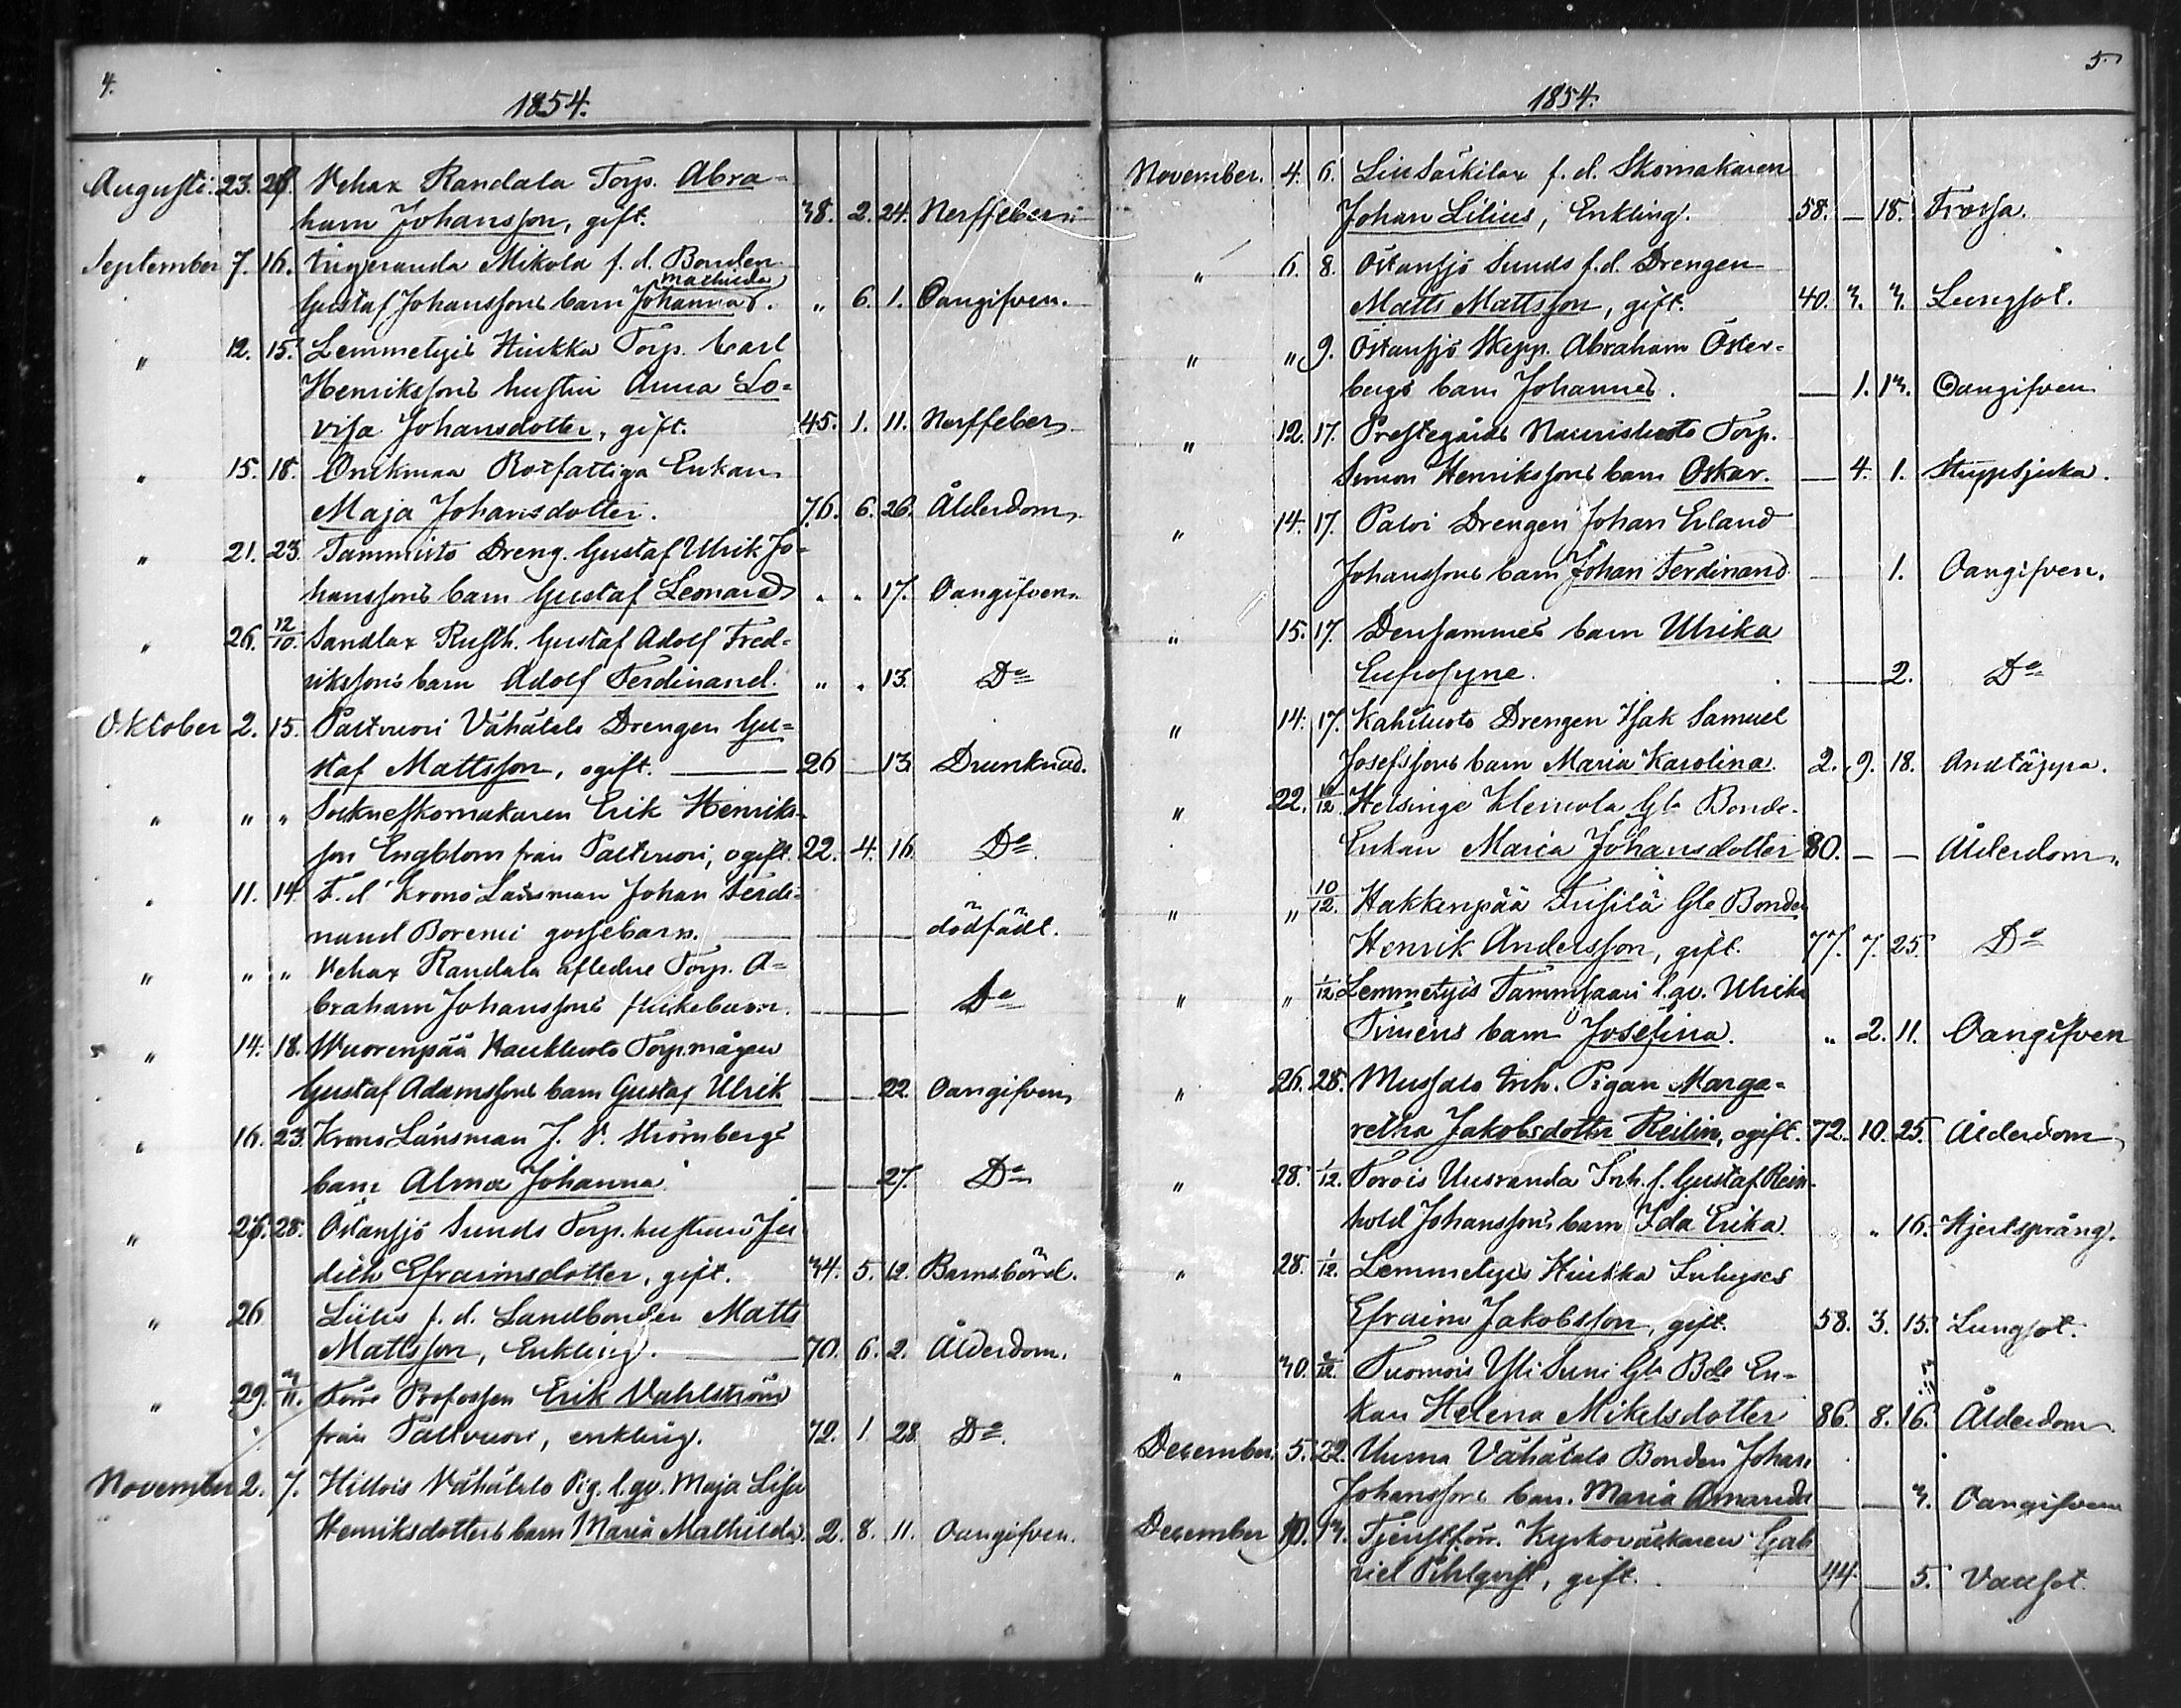 4.
1854.
Augusti. 23. 27. Vehax Randala Torp. Abra-
ham Johansson, gift. 38. 2. 24. Nerffeber.
September 7. 16. Mikola f. d. Bonden
Mathilda
Gustaf Johanssons barn Johanna. " 6. 1. Oangifven.
" 12. 15. Lemmetyis Hiukka Torp. Carl
Henrikssons hustru Anna Lo-
visa Johansdotter, gift. 45. 1. 11. Nerffeber
" 15. 18. Onikmaa Rotfattiga Enkan
Maja Johansdotter. 76. 6. 26. Ålderdom.
" 21. 23. Tammisto Dreng. Gustaf Ulrik Jo-
hanssons barn Gustaf Leonard " " 17. Oangifven.
" 26. 12/10. Sandlax Rusth. Gustaf Adolf Fred-
rikssons barn Adolf Ferdinand. " " 13. Do
Oktober 2. 15. Paltvuori Vähätalo Drengen Gu-
staf Mattsson, ogift. 26 — 13. Drunknad.
" " " Socknesskomakaren Erik Henriks-
son Engblom från Paltvuori, ogift. 22. 4. 16. Do.
" 11. 14. F. d. Krono Länsman Johan Ferdi-
nand Borenii gossebarn. dödfödt.
" " " Vehax Randala afledne Torp. A-
braham Johanssons flickebarn. Do
" 14. 18. Wuorenpää Haukluoto Torp.mågen
Gustaf Adamssons barn Gustaf Ulrik — 22. Oangifven.
" 16. 23. Krono Länsman J. V. Strömbergs
barn Alma Johanna. — 27. Do
" 26. 28. Östansjö Sunds Torp. hustrun Ju-
dith Efraimsdotter, gift. 34. 5. 12. Barnsbörd.
" 26 f. d. Landbonden Matts
Mattsson, Enkling. 70. 6. 2. Ålderdom.
" 29. 3/11. Förre Profossen Erik Vahlström
från Paltvuori, enkling. 72. 1. 28. Do.
November 2. 7. Hillois Vähätalo Pig. l. qv. Maja Lisa
Henriksdotters barn Maria Mathilda. 2. 8. 11. Oangifven.
5.
1854.
November. 4. 6. Särkilax f. d. Skomakaren
Johan Lilius, Enkling. 58. — 18. Frossa.
" 6. 8. Östansjö Sunds f. d. Drengen
Matts Mattsson, gift. 40. 3. 3. Lungsot.
" " 9. Östansjö Skepp. Abraham Öster-
bergs barn Johannes. — 1. 13. Oangifven
" 12. 17. Prestegårds Torp.
Simon Henrikssons barn Oskar. — 4. 1. Stuppsjuka.
" 14. 17. Palois Drengen Johan Erland
Johanssons barn Johan Ferdinand — 1. Oangifven.
" 15. 17. Densammes barn Ulrika
Eufrosyne. — 2. Do
" 14. 17. Kahiluoto Drengen Isak Samuel
Josefssons barn Maria Karolina. 2. 9. 18. Andtäppa.
" 22. 10/12. Helsinge Kleimola Gl. Bonde-
Enkan Maria Johansdotter 80. — — Ålderdom.
" " 10/12. Hakkenpää Gle Bonden
Henrik Andersson, gift. 77. 7. 25. Do
" " 1/12 Lemmetyis Tammisaari l. qv. Ulrika
Timens barn Josefina. " 2. 11. Oangifven
" 26. 28. Mussalo Inh. Pigan Marga-
retha Jakobsdotter Reilin, ogift. 72. 10. 25. Ålderdom
" 28. 1/12. Torois Uusranda Inh. f. Gustaf Rein-
hold Johanssons barn Ida Erika. " 16. Hjertsprång.
" 28. 1/12. Lemmetyis Hiukka
Efraim Jakobsson, gift. 58. 3. 15. Lungsot.
" 30. 3/12. Tuomois Yli Suni Gl. Bde En-
kan Helena Mikelsdotter 86. 8. 16. Ålderdom
December. 5. 22. Uuma Vähätalo Bonden Johan
Johanssons barn. Maria Amanda — — 3. Oangifven
December 10. 13. Tjenstförr. Kyrkoväktaren Gab-
riel Pihlqvist, gift. 44. — 5. Vattsot.